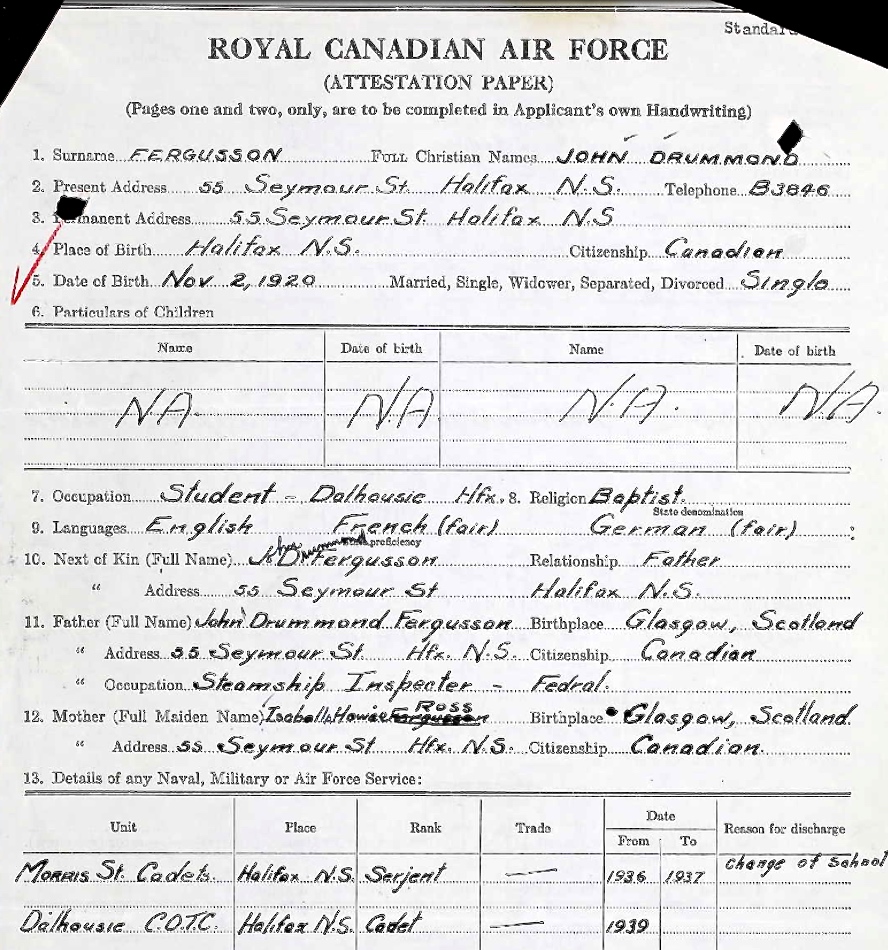 Standar
ROYAL CANADIAN AIR FORCE
(ATTESTATION PAPER)
(Pages one and two, only, are to be completed in Applicant's own Handwriting)
1. Surname FERGUSSON Full Christian Names JOHN DRUMMOND
2. Present Address 55 Seymour St. Halifax N.S. Telephone B3846
3. Permanent Address 55 Seymour St. Halifax N.S
4. Place of Birth Halifax N.S. Citizenship Canadian
5. Date of Birth Nov. 2, 1920 Married, Single, Widower, Separated, Divorced Single
6. Particulars of Children
Name Date of birth Name Date of birth
N.A. N.A. N.A. N.A.
7. Occupation Student - Dalhousie Hfx. 8. Religion Baptist.
State denomination
9. Languages English French (fair) German (fair)
proficiency
John Drummond
10. Next of Kin (Full Name) J. D. Fergusson Relationship Father
" Address 55 Seymour St Halifax N.S.
11. Father (Full Name) John Drummond Fergusson Birthplace Glasgow, Scotland
" Address 55 Seymour St. Hfx. N.S. Citizenship Canadian
" Occupation Steamship Inspecter - Fedral.
Ross
12. Mother (Full Maiden Name) Isabella Howie Fergusson Birthplace Glasgow, Scotland.
" Address 55 Seymour St Hfx. N.S. Citizenship Canadian.
13. Details of any Naval, Military or Air Force Service:
Unit Place Rank Trade Date Reason for discharge
From To
Morris St. Cadets. Halifax N.S. Serjent — 1936 1937 Change of School
Dalhousie C.O.T.C. Halifax N.S. Cadet — 1939